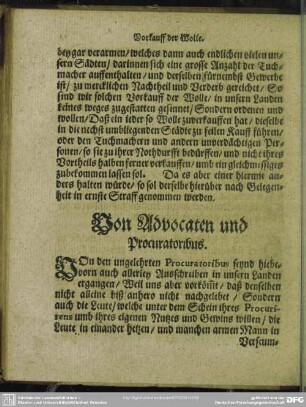 Vorkauff der Wolle.
beygar verarmen/ welches dann auch endlichen vielen un-
sern Städten/ darinnen sich eine grosse Anzahl der Tuch-
macher auffenthalten/ und derselben fürnembst Gewerbe
ist/ zu mercklichen Nachtheil und Verderb gereichet/ So
sind wir solchen Vorkauff der Wolle/ in unsern Landen
keines weges zugestatten gesonnet/ Sondern ordenen und
wollen/ Daß ein ieder so Wolle zuverkauffen hat/ dieselbe
in die nechst umbliegenden Städte zu feilen Kauff führen/
oder den Tuchmachern und andern unverdächtigen Per-
sonen/ so sie zu ihrer Nothdurfft bedürffen/ und nicht ihres
Vortheils halben ferner verkauffen/ umb ein gleichmässiges
zukommen lassen sol. Da es aber einer hierwie an-
ders halten würde/ so sol derselbe hierüber nach Gelegen-
heit in ernste Straff genommen werden.
Von Advocaten und
Procuratoribus.
VOn den ungelehrten Procuratoribus seynd hiebe-
vorn auch allerley Ausschreiben in unsern Landen
ergangen/ Weil uns aber vorkömt/ daß denselben
nicht alleine biß anhero nicht nachgelebet/ Sondern
auch die Leute/ welche unter dem Schein ihres Procuri-
rens umb ihres eigenen Nutzes und Gewins willen/ die
Leute in einander hetzen/ und manchen armen Mann in
Verseum-
DFG